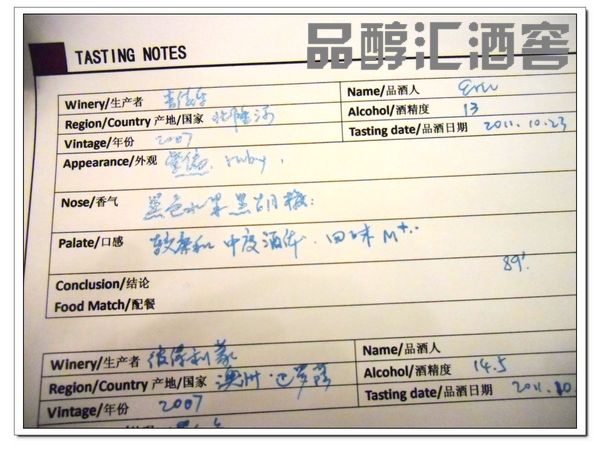 品醇汇酒窖
TASTING NOTES
Winery/生产者 吉佳乐 Name/品酒人 Eric
Region/Country 产地/国家 北隆河 Alcohol/酒精度 13
Vintage/年份 2007 Tasting date/品酒日期 2011.10.23
Appearance/外观 ruby,
Nose/香气 黑色水果黑胡椒
Palate/口感 较柔和 中度酒体. 回味 M+..
Conclusion/结论 89'
Food Match/配餐
Winery/生产者 彼得利蒙 Name/品酒人
Region/Country 产地/国家 澳洲.巴罗萨 Alcohol/酒精度 14.5
Vintage/年份 2007 Tasting date/品酒日期 2011.10